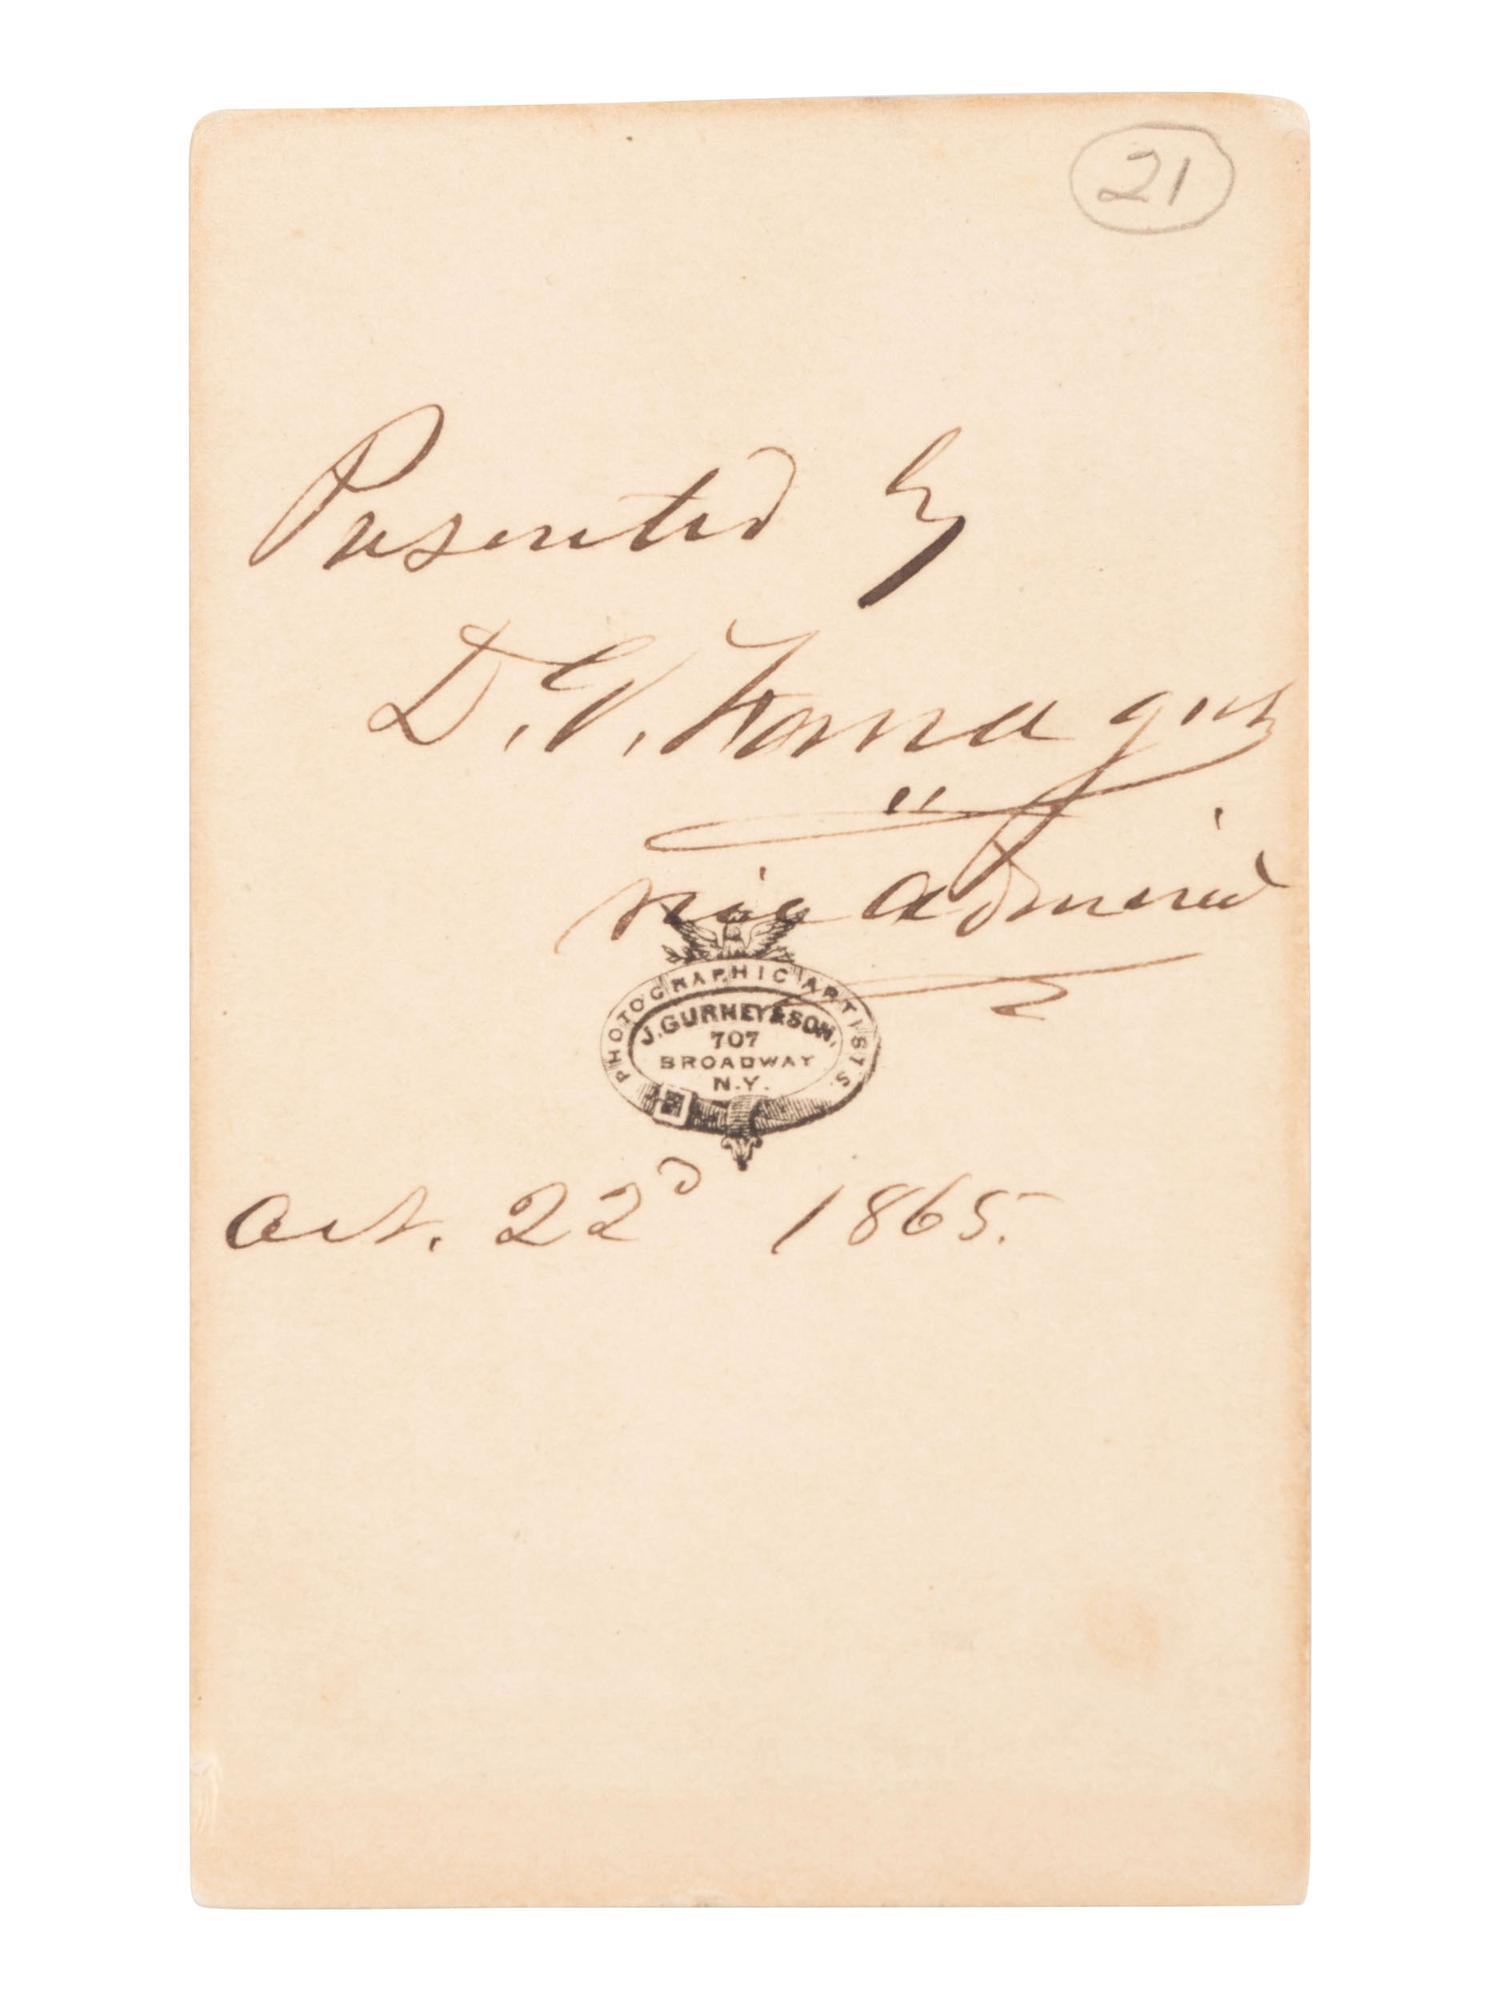 21
Presented by
D. G. Farragut
vice admiral
PHOTOGRAPHIC ARTISTS.
J. GURNEY & SON,
707
BROADWAY
N.Y.
Oct. 22d 1865.